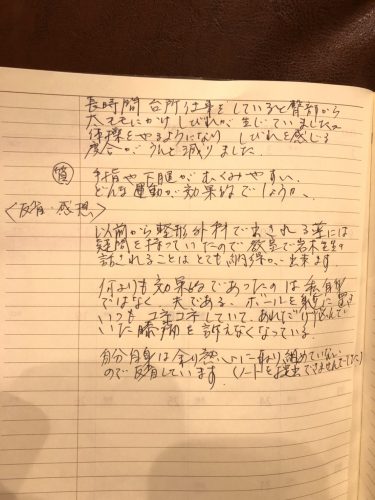 長時間台所仕事をしていると臀部から
太モモにかけしびれが生じていました。
体操をやるようになり しびれを感じる
度合がうんと減りました。
質 手指や下腿がむくみやすい。
どんな運動が効果的でしょうか。
〈反省・感想〉
以前から整形外科で出される薬には
疑問を持っていたので教室で岩木先生の
話されることはとても納得が出来ます。
何よりも効果的であったのは私自身
ではなく、夫である。ボールを 置き
いつもコネコネしていて、あれだけ
いた膝痛を訴えなくなっている。
自分自身は余り熱心に取り組めていない
ので反省しています。(ノートを提出できませんでした)